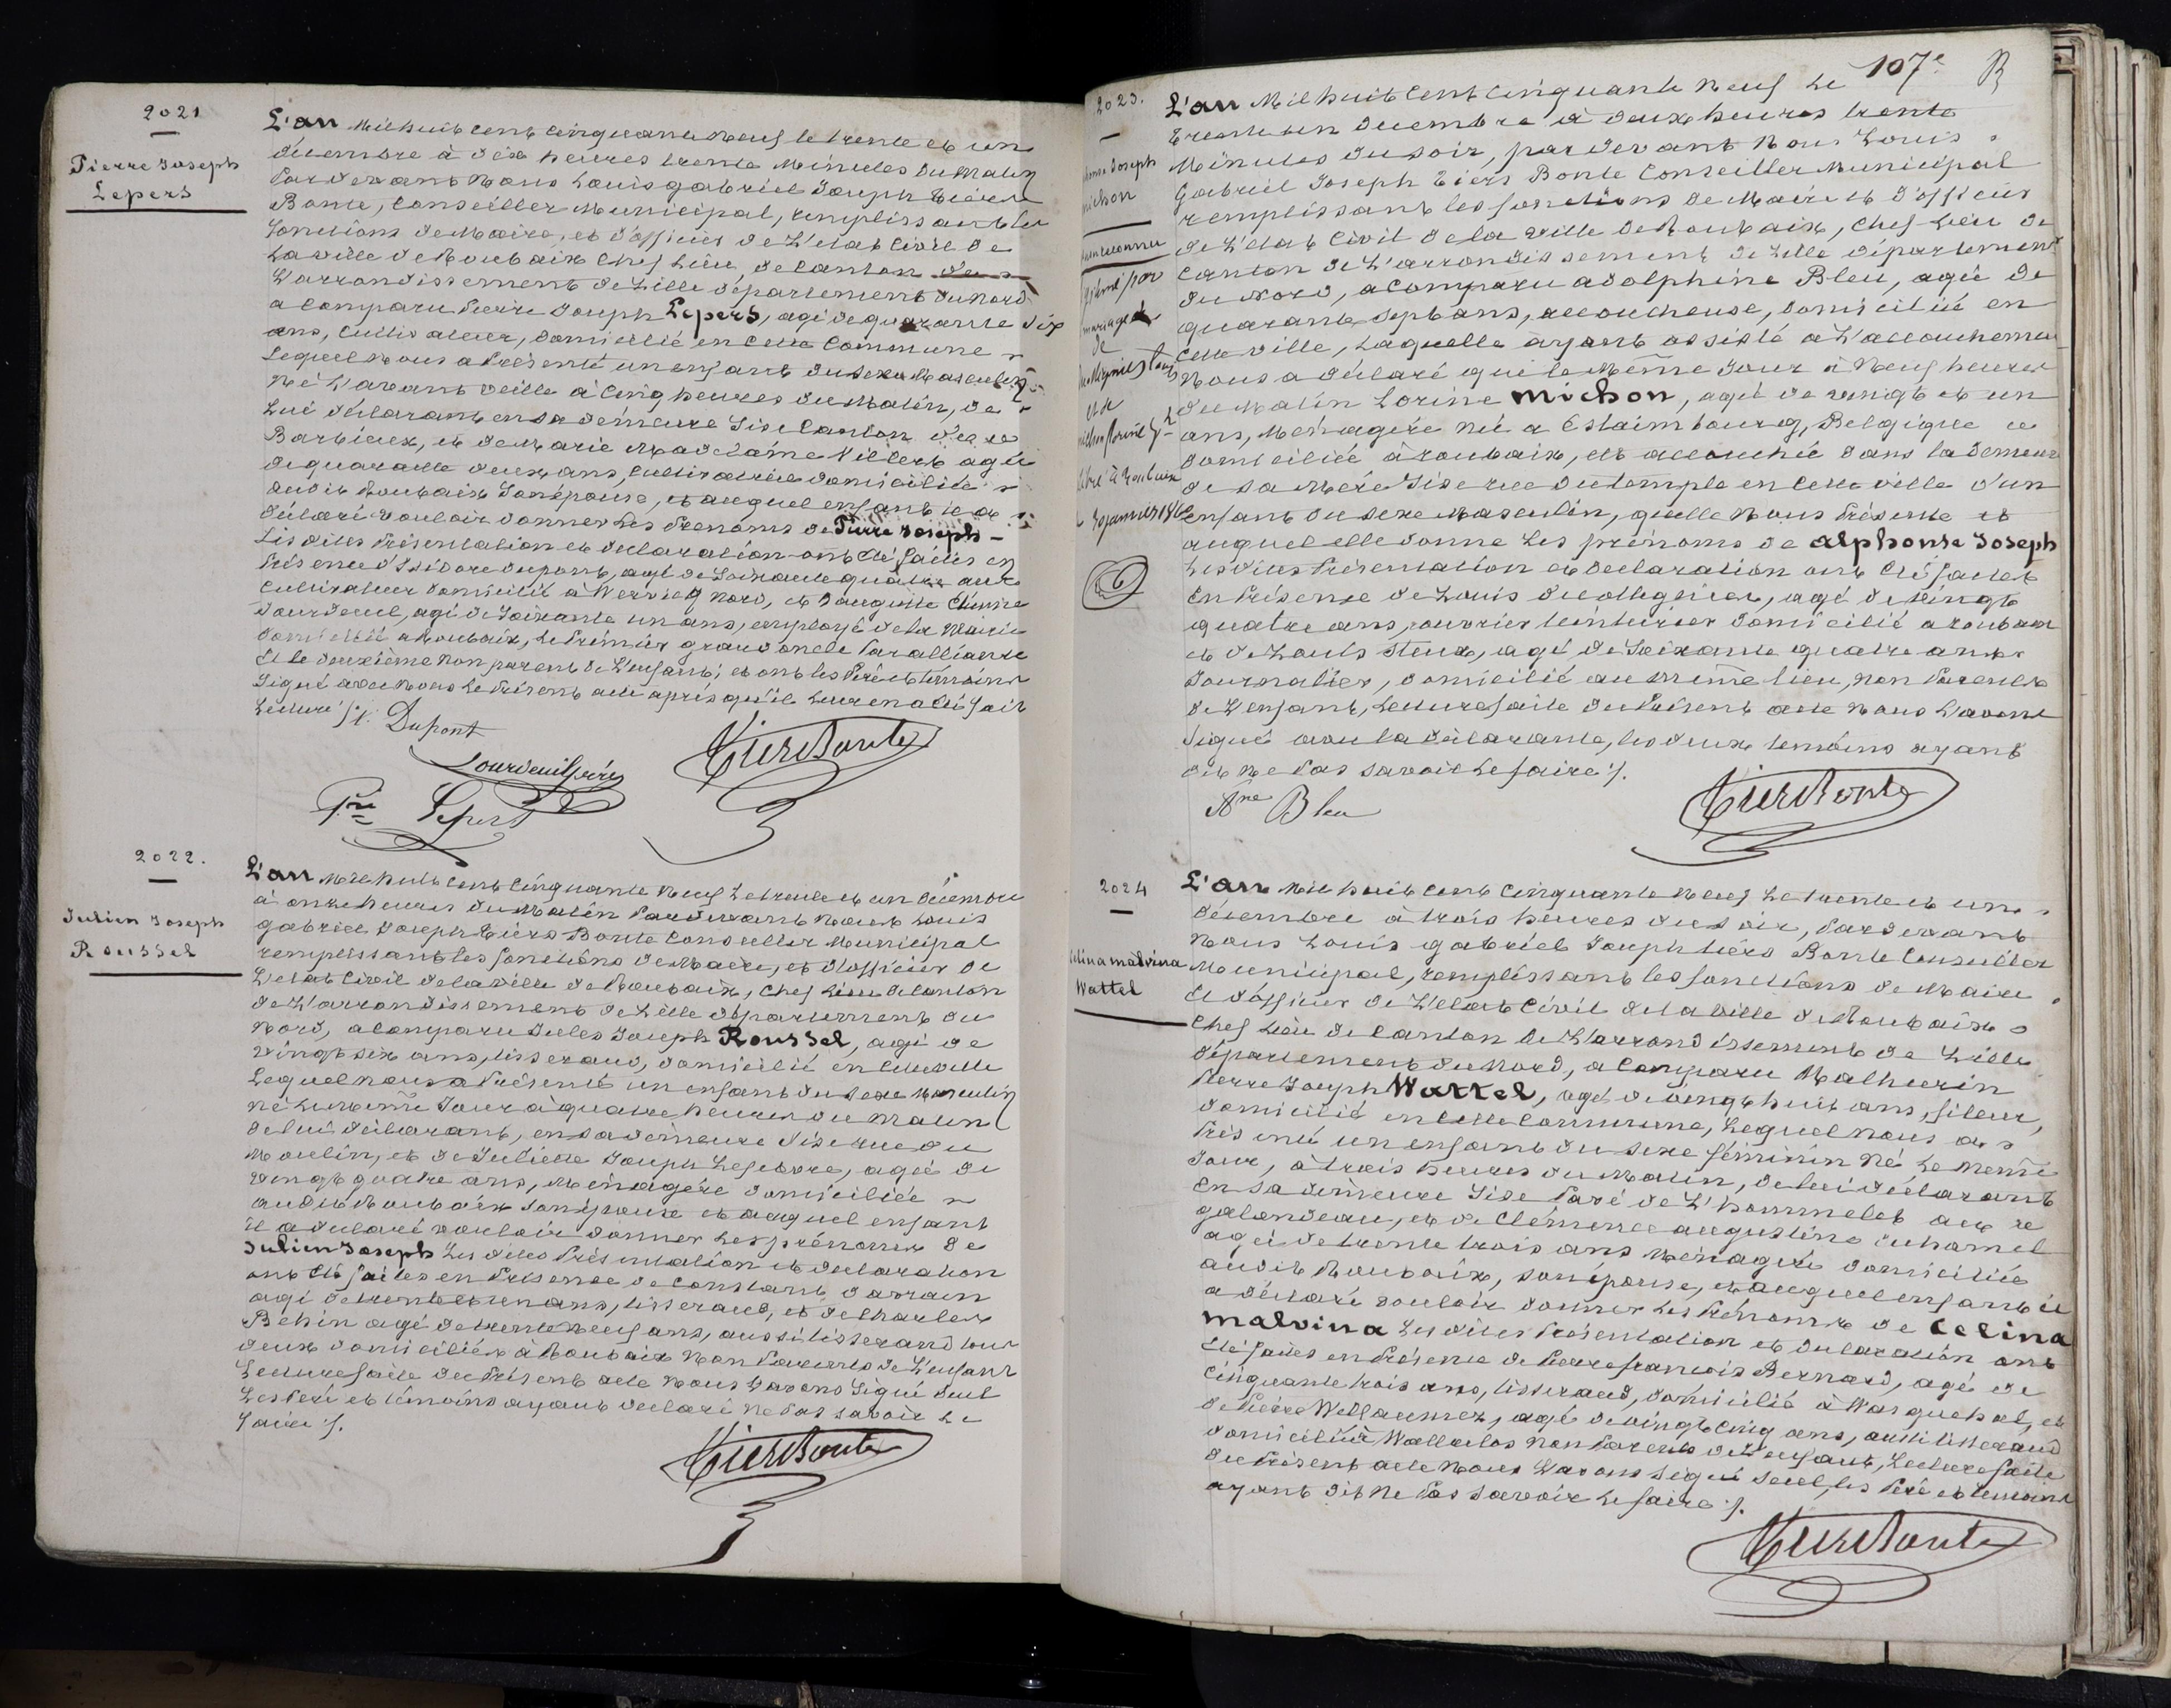 2021
Pierre Joseph
Lepers
L'an Mil huit cent cinquante Neuf le trente et un
décembre à dix heures trente Minutes du Matin
Pardevant Nous Louis gabriel Joseph Tiers
Bonte, Conseiller Municipal, remplissant les
fonctions de Maire, et d'officier de L'etat Civil de
La ville de Roubaix Chef Lieu, de Canton de
L'arrondissement de Lille département du Nord
a Comparu Pierre Joseph Lepers, agé de quarante six
ans, Cultivateur, domicilié en Cette Commune
Lequel Nous a Présenté un enfant du sexe Masculin
Né L'avant veille à Cinq heures du Matin, de
Lui déclarant en sa demeure Sise Canton de
Barbieux, et de Marie Madelaine Villers agée
de quarante deux ans, Cultivatrice domiciliée
audit Roubaix Son épouse, et auquel enfant il a
déclaré vouloir donner Les Prénoms de Pierre Joseph -
Les dites Présentation et declaration ont été faites en
Présence d'Isidore Dupont, agé de Soixante quatre ans
Cultivateur domicilié à Nord, et d'auguste
Dourdeuil, agé de Soixante un ans, employé de la Mairie
domicilié a Roubaix, Le Prémier grand oncle Par alliance
Et le deuxième Non parent de L'enfant; et ont les Père et témoins
Signé avec Nous Le Présent acte après qu'il Leur en a été fait
Lecture ./.
Dupont
Dourdeuil père
Tiers Bonte
Pre Lepers
2022.
Julien Joseph
Roussel
L'an Mil huit Cent Cinquante Neuf Le trente et un Décembre
à onze heures du Matin Pardevant Nous Louis
gabriel Joseph Tiers Bonte Conseiller Municipal
remplissant les fonctions de Maire, et d'officier de
L'etat Civil de la ville de Roubaix, Chef Lieu de Canton
de L'arrondissement de Lille département du
Nord, a Comparu Jules Joseph Roussel, agé de
vingt six ans, tisserand, domicilié en Cette ville
Lequel Nous a Présenté un enfant du sexe Masculin
Né Le Même Jour à quatre heures du Matin
de lui déclarant, en sa demeure Sise rue du
Moulin, et de Juliette Joseph Lefebvre, agée de
vingt quatre ans, Ménagère domiciliée
audit Roubaix Son épouse et auquel enfant
il a déclaré vouloir donner Les prénoms de
Julien Joseph Les dites Présentation et declaration
ont été faites en Présence de Constant Darrain
agé de trente et un ans, tisserand, et de Charles
Behin agé de trente Neuf ans, aussi tisserand tous
deux domiciliés à Roubaix Non Parents de L'enfant
Lecture faite du Présent acte Nous L'avons Signé Seul
Les Père et témoins ayant declaré Ne Pas savoir Le
faire ./.
Tiers Bonte
107e
2023.
Joseph
Michon
reconnu
par
mariage
de
et de
à Roubaix
L'an Mil huit Cent Cinquante Neuf Le
trente un Décembre à deux heures trente
Minutes du soir, pardevant Nous Louis
Gabriel Joseph Tiers Bonte Conseiller Municipal
remplissant les fonctions de Maire et d'officier
de L'etat Civil de la ville de Roubaix, Chef Lieu de
Canton de L'arrondissement de Lille département
du Nord, a Comparu adolphine Bleu, agée de
quarante sept ans, accoucheuse, domiciliée en
Cette ville, Laquelle ayant assisté a L'accouchement
Nous a déclaré que le Même Jour à Neuf heures
du Matin Lorine Michon, agée de vingt et un
ans, Ménagère née a Estaimbourg, Belgique et
domiciliée à roubaix, est accouchée dans la Demeure
de sa Mère Sise rue du temple en Cette ville d'un
enfant du sexe Masculin, qu'elle Nous Présente et
auquel elle donne Les prénoms de alphonse Joseph
Les dites Présentation et Declaration ont été faites
en Présence de Louis , agé de vingt
quatre ans, ouvrier teinturier domicilié a roubaix
et de Louis Steux, agé de Soixante quatre ans
Journalier, domicilié au même lieu, Non Parents
de L'enfant, Lecture faite du Présent acte Nous L'avons
Signé avec la déclarante, les deux témoins ayant
dit Ne Pas savoir Le faire ./.
Ane Bleu
Tiers Bonte
2024
Celina malvina
Wattel
L'an Mil huit Cent Cinquante Neuf Le trente et un
décembre à trois heures du soir, Pardevant
Nous Louis gabriel Joseph tiers Bonte Conseiller
Municipal, remplissant les fonctions de Maire
Et d'officier de L'etat Civil de la ville de Roubaix
Chef Lieu de Canton de L'arrondissement de Lille
département du Nord, a Comparu Mathurin
Pierre Joseph Wattel, agé de vingt huit ans, fileur,
domicilié en Cette Commune, Lequel Nous a
Présenté un enfant du sexe féminin Né Le Même
Jour, à trois heures du Matin, de lui déclarant
en sa demeure Sise Pavé de L'hommelet au
galondeau, et de Clémence augustine duhamel
agée de trente trois ans Ménagère domiciliée
audit Roubaix, son épouse, et auquel enfant il
a déclaré vouloir donner Les Prénoms de Celina
malvina Les dites Présentation et declaration ont
été faites en Présence de Pierre francois Bernard, agé de
Cinquante trois ans, tisserand, domicilié à Wasquehal, et
de Pierre , agé de vingt cinq ans, aussi tisserand
domicilié à Wattrelos Non Parents de L'enfant, Lecture faite
du Présent acte Nous L'avons Signé Seul, les Père et temoins
ayant dit Ne Pas savoir Le faire ./.
Tiers Bonte